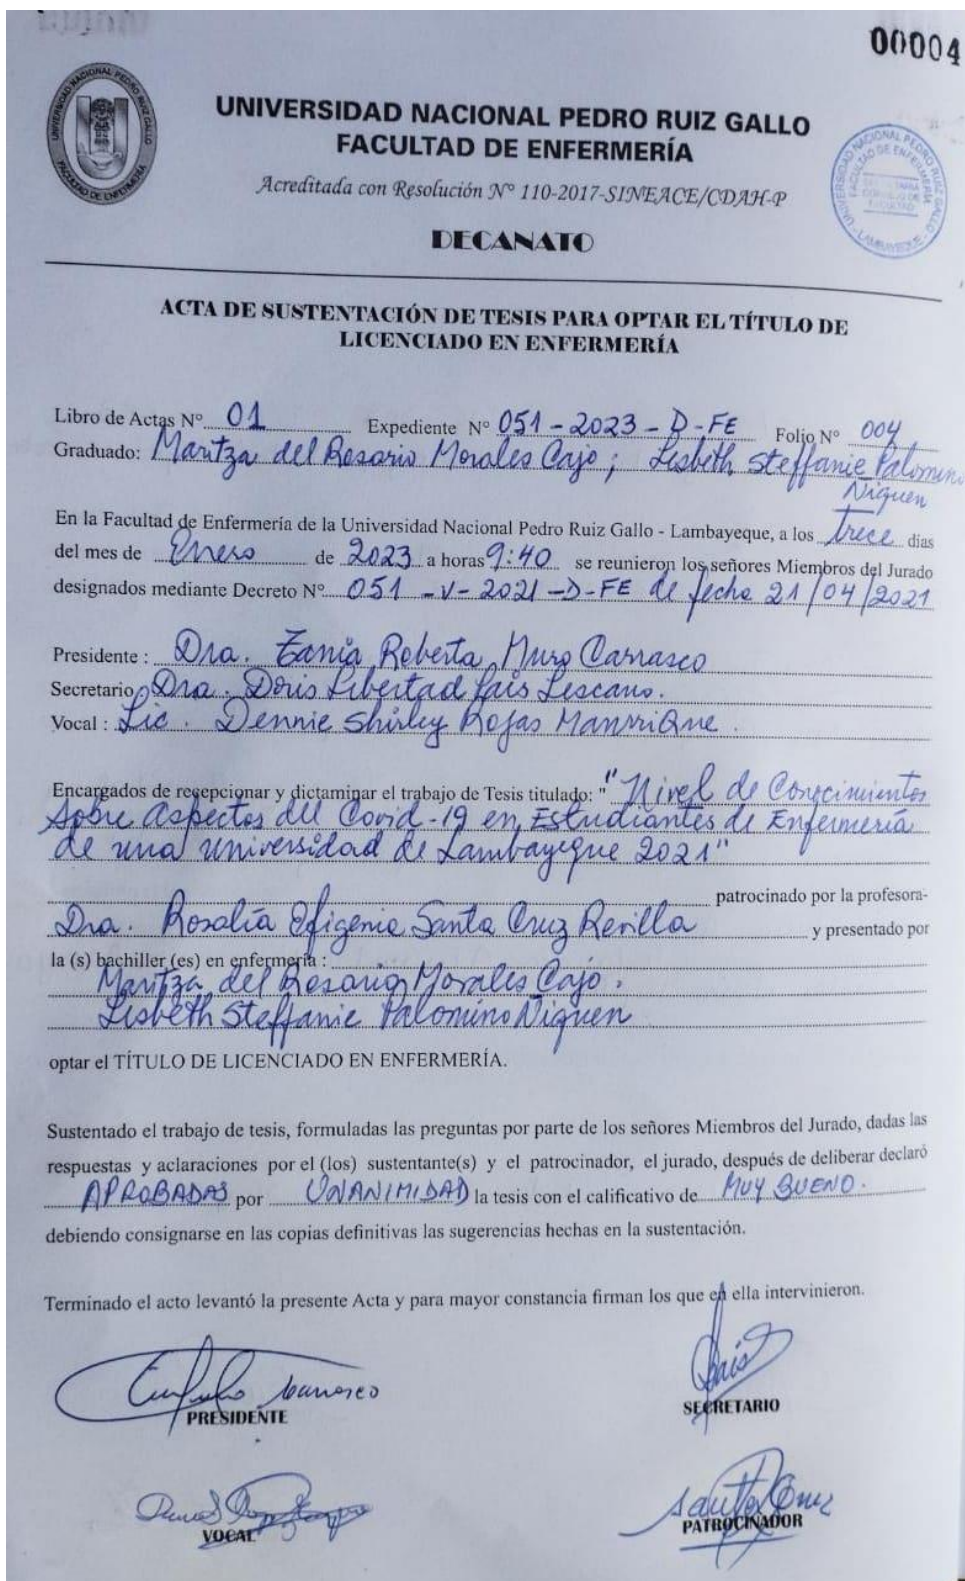 00004
UNIVERSIDAD NACIONAL PEDRO RUIZ GALLO
FACULTAD DE ENFERMERÍA
Acreditada con Resolución Nº 110-2017-SINEACE/CDAH-P
DECANATO
ACTA DE SUSTENTACIÓN DE TESIS PARA OPTAR EL TÍTULO DE
LICENCIADO EN ENFERMERÍA
Libro de Actas Nº 01 Expediente Nº 051-2023-D-FE Folio Nº 004
Graduado: Maritza del Rosario Morales Cajo; Lisbeth Steffanie Palomino
Niquen
En la Facultad de Enfermería de la Universidad Nacional Pedro Ruiz Gallo - Lambayeque, a los trece días
del mes de Enero de 2023 a horas 9:40 se reunieron los señores Miembros del Jurado
designados mediante Decreto Nº 051-V-2021-D-FE de fecha 21/04/2021
Presidente: Dra. Tania Roberta Muro Carrasco
Secretario Dra. Doris Libertad Lescano.
Vocal: Lic. Dennie Shirley Rojas Manrique.
Encargados de recepcionar y dictaminar el trabajo de Tesis titulado: "Nivel de Conocimientos
Sobre Aspectos del Covid-19 en Estudiantes de Enfermería
de una universidad de Lambayeque 2021"
patrocinado por la profesora-
Dra. Rosalía Efigenia Santa Cruz Revilla y presentado por
la (s) bachiller (es) en enfermería:
Maritza del Rosario Morales Cajo.
Lisbeth Steffanie Palomino Niquen
optar el TÍTULO DE LICENCIADO EN ENFERMERÍA.
Sustentado el trabajo de tesis, formuladas las preguntas por parte de los señores Miembros del Jurado, dadas las
respuestas y aclaraciones por el (los) sustentante(s) y el patrocinador, el jurado, después de deliberar declaró
APROBADAS por UNANIMIDAD la tesis con el calificativo de MUY BUENO.
debiendo consignarse en las copias definitivas las sugerencias hechas en la sustentación.
Terminado el acto levantó la presente Acta y para mayor constancia firman los que en ella intervinieron.
PRESIDENTE
SECRETARIO
VOCAL
PATROCINADOR